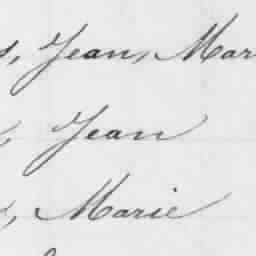 s, Jean, Mar
, Jean
, Marie